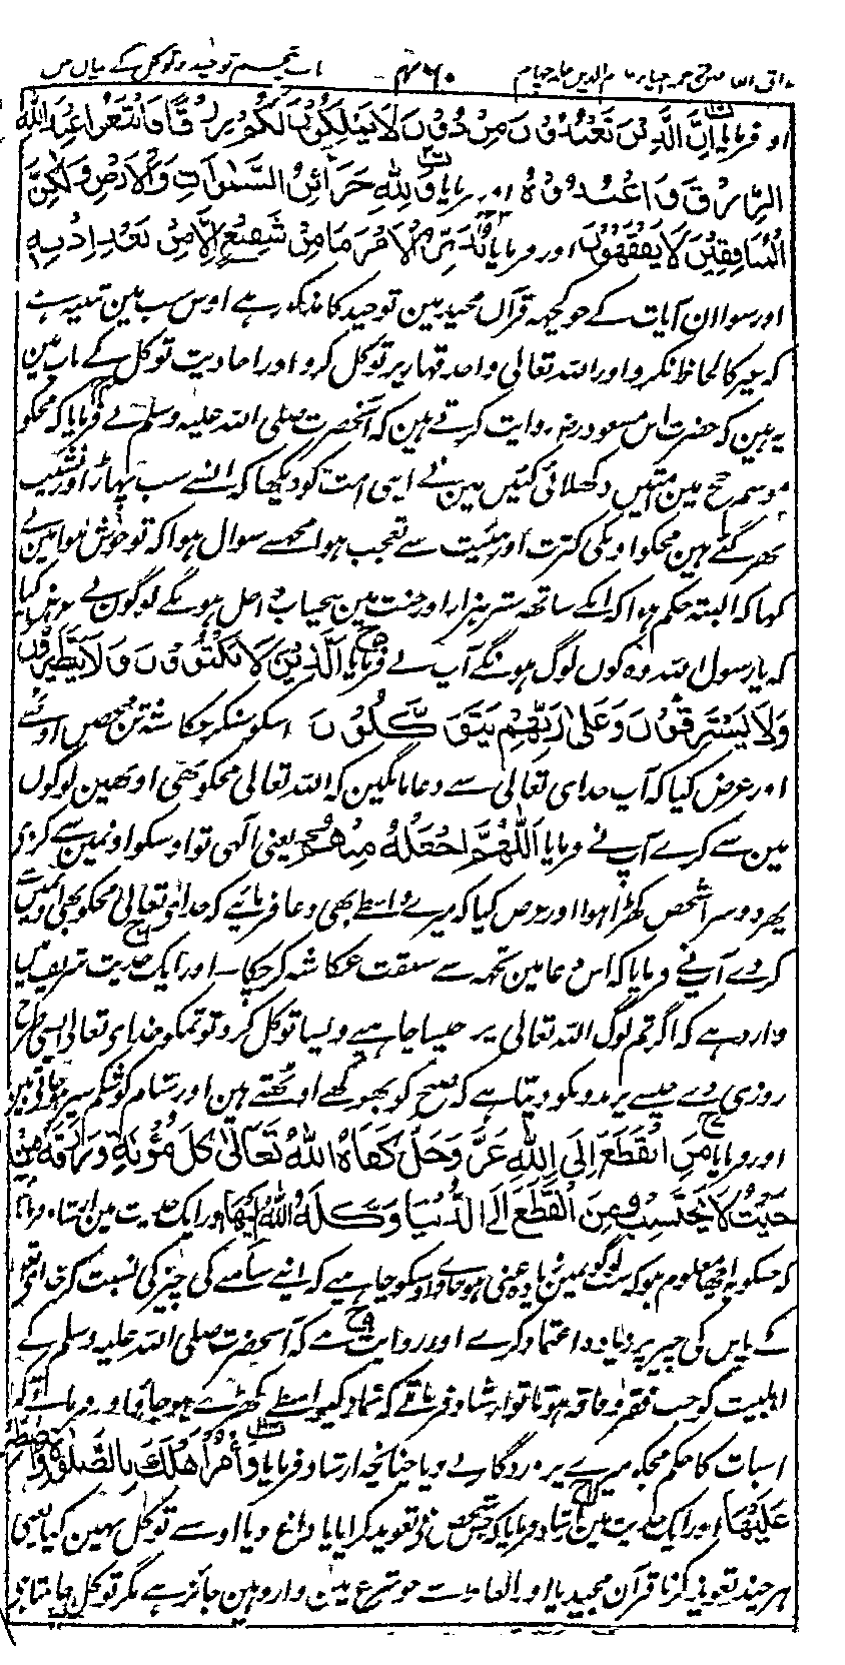 باب پنجم توحید و توکل کے بیان میں
۴۶۰
اور فرمایا إِنَّ الَّذِينَ تَعْبُدُونَ مِنْ دُونِ لَا يَمْلِكُونَ لَكُمْ رِزْقًا فَابْتَغُوا عِنْدَ اللَّهِ
الرِّزْقَ وَاعْبُدُوهُ اور فرمایا وَلِلَّهِ خَزَائِنُ السَّمَوَاتِ وَالْأَرْضِ وَلَكِنَّ
الْمُنَافِقِينَ لَا يَفْقَهُونَ اور فرمایا يُدَبِّرُ الْأَمْرَ مَا مِنْ شَفِيعٍ إِلَّا مِنْ بَعْدِ إِذْنِهِ
اور سوا ان آیات کے جو کچہہ قرآن مجید مین توحید کا مذکور ہے اوس سب مین تنبیہ ہے
کہ غیر کا لحاظ نکرو اور اللہ تعالی واحد قہار پر توکل کرو اور احادیث توکل کے باب مین
یہ ہین کہ حضرت ابن مسعود رضہ روایت کرتے ہین کہ آنحضرت صلی اللہ علیہ وسلم نے فرمایا کہ مجکو
موسم حج مین امتیں دکھلائی گئیں مین نے اپنی امت کو دیکھا کہ انسے سب پہاڑ اور نشیب
بھر گئے ہین مجکو اونکی کثرت اور ہیئیت سے تعجب ہوا مجھے سوال ہوا کہ تو خوش ہوا مین نے
کہا کہ البتہ حکم ہوا کہ انکے ساتھہ ستر ہزار اور جنت مین بیحساب داخل ہونگے لوگون نے عرض کیا
کہ یا رسول اللہ وہ کون لوگ ہونگے آپ نے فرمایا الَّذِينَ لَا يَكْتَوُونَ وَلَا يَتَطَيَّرُونَ
وَلَا يَسْتَرْقُونَ وَعَلَى رَبِّهِمْ يَتَوَكَّلُونَ اسکو سنکر عکاشہ بن محصن اوٹھے
اور عرض کیا کہ آپ خدای تعالی سے دعا مانگین کہ اللہ تعالی مجکو بھی اونھین لوگون
مین سے کرے آپ نے فرمایا اَللَّهُمَّ اجْعَلْهُ مِنْهُمْ یعنی الٰہی تو اوسکو اونمین سے کردی
پھر دوسرا شخص کھڑا ہوا اور عرض کیا کہ میرے واسطے بھی دعا فرمائیے کہ خدای تعالی مجکو بھی اونمین سے
کردے آپنے فرمایا کہ اس دعا مین تجھہ سے سبقت عکاشہ کر چکا۔ اور ایک حدیث شریف مین
وارد ہے کہ اگر تم لوگ اللہ تعالی پر جیسا چاہیے ویسا توکل کرو تو تمکو خدای تعالی ایسی طرح
روزی دے جیسے پرندونکو دیتا ہے کہ صبح کو بھوکھے اوٹھتے ہین اور شام کو شکم سیر ہو جاتے ہین
اور فرمایا مَنِ انْقَطَعَ إِلَى اللَّهِ عَزَّ وَجَلَّ كَفَاهُ اللَّهُ تَعَالَى كُلَّ مُؤْنَةٍ وَرَزَقَهُ مِنْ
حَيْثُ لَا يَحْتَسِبُ وَمَنِ انْقَطَعَ إِلَى الدُّنْيَا وَكَلَهُ اللَّهُ إِلَيْهَا اور ایک حدیث مین ارشاد فرمایا
کہ جسکو یہ اچھا معلوم ہو کہ سب لوگونمین زیادہ غنی ہوجاوے اوسکو چاہیے کہ اپنے سامنے کی چیز کی نسبت کر خدای تعالی
کے پاس کی چیز پر زیادہ اعتماد کرے اور روایت ہے کہ آنحضرت صلی اللہ علیہ وسلم کے
اہلبیت کو جب فقر و فاقہ ہوتا تو ارشاد فرماتے کہ نماز کیواسطے کھڑے ہوجاؤ اور فرماتے کہ
اسبات کا حکم مجکو میرے پروردگار نے دیا چنانچہ ارشاد فرمایا وَأْمُرْ أَهْلَكَ بِالصَّلَوٰةِ وَاصْطَبِرْ
عَلَيْهَا اور ایک حدیث مین ارشاد فرمایا کہ جس شخص نے تعویذ کرایا یا داغ دیا اوسنے توکل نہین کیا یعنی
ہر چند تعویذ کرنا قرآن مجید یا اور الفاظ سے جو شرع مین وارد ہین جائز ہے مگر توکل جاتا